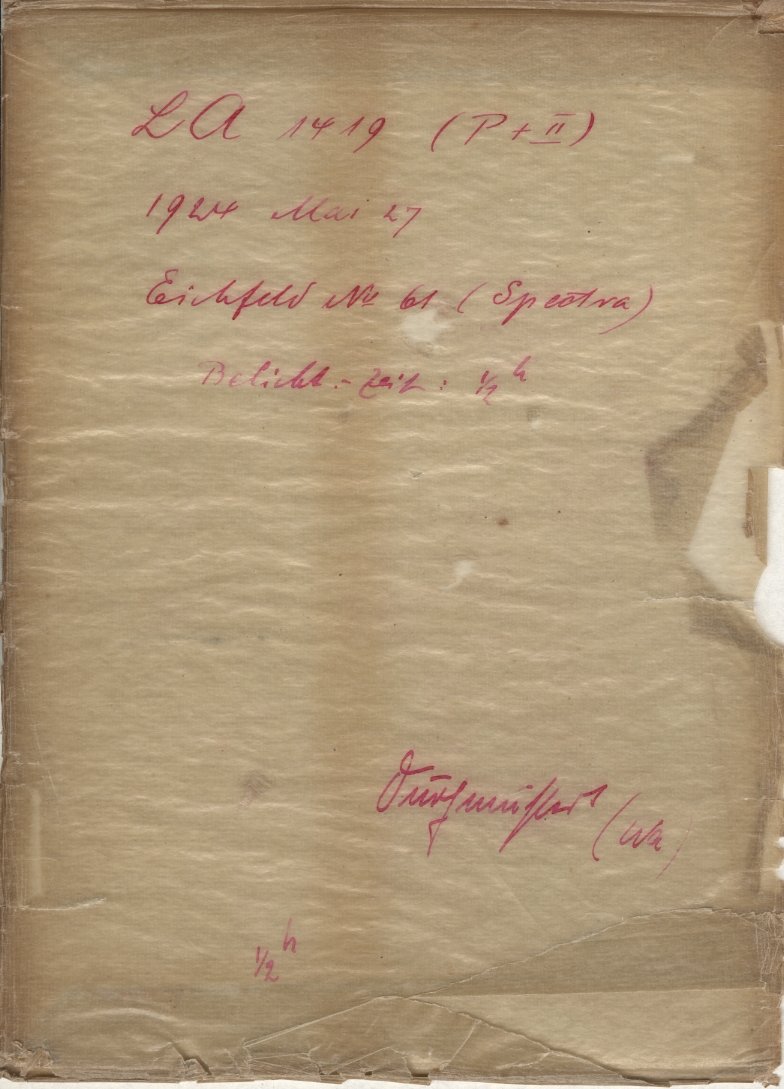 LA 1419 (P + II)
1924 Mai 27
Eichfeld No 61 (Spectra)
Belicht.-Zeit: 1/2 h
Durchmustert (Wa)
1/2 h